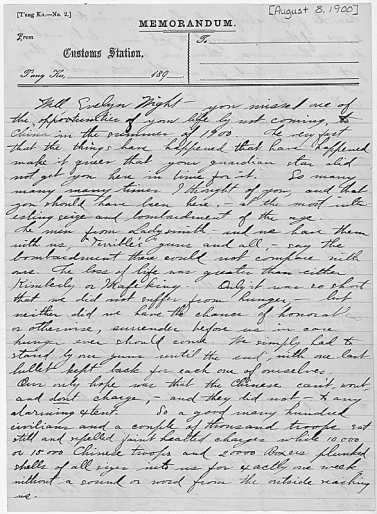 [T'ang Ku.—No. 2.]
[August 8, 1900]
MEMORANDUM.
From
To
Customs Station,
T'ang Ku, 189
Well Evelyn Wight - you missed one of
the opportunities of your life by not coming to
China in the summer of 1900. The very fact
that the things have happened that have happened
make it queer that your guardian star did
not get you here in time for it. So many
many many times I thought of you, and that
you should have been here, - at the most inter-
esting seige and bombardment of the age
The men from Ladysmith - and we have them
with us, "Terrible's" guns and all, - say the
bombardment there could not compare with
ours. The loss of life was greater than either
Kimberly or Mafeking. Only it was so short
that we did not suffer from hunger, - but
neither did we have the chance of honorable
or otherwise, surrender before us in case
hunger ever should come. We simply had to
stand by our guns until the end, with one last
bullet kept back for each one of ourselves.
Our only hope was that the Chinese can't, wont
and dont charge, - and they did not - to any
alarming extent. So a good many hundred
civilians and a couple of thousand troops sat
still and repelled faint hearted charges while 10,000
or 15,000 Chinese troops and 20000 Boxers plunked
shells of all sizes into us for exactly one week
without a sound or word from the outside reaching
us.